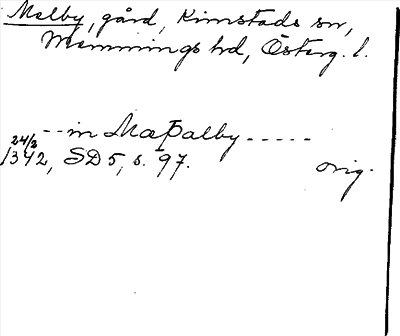 Melby, gård, Kimstads sn,
Memmings hd, Österg. l.
-- in Mæþalby -----
24/2
1342, SD 5, s. 97. orig.